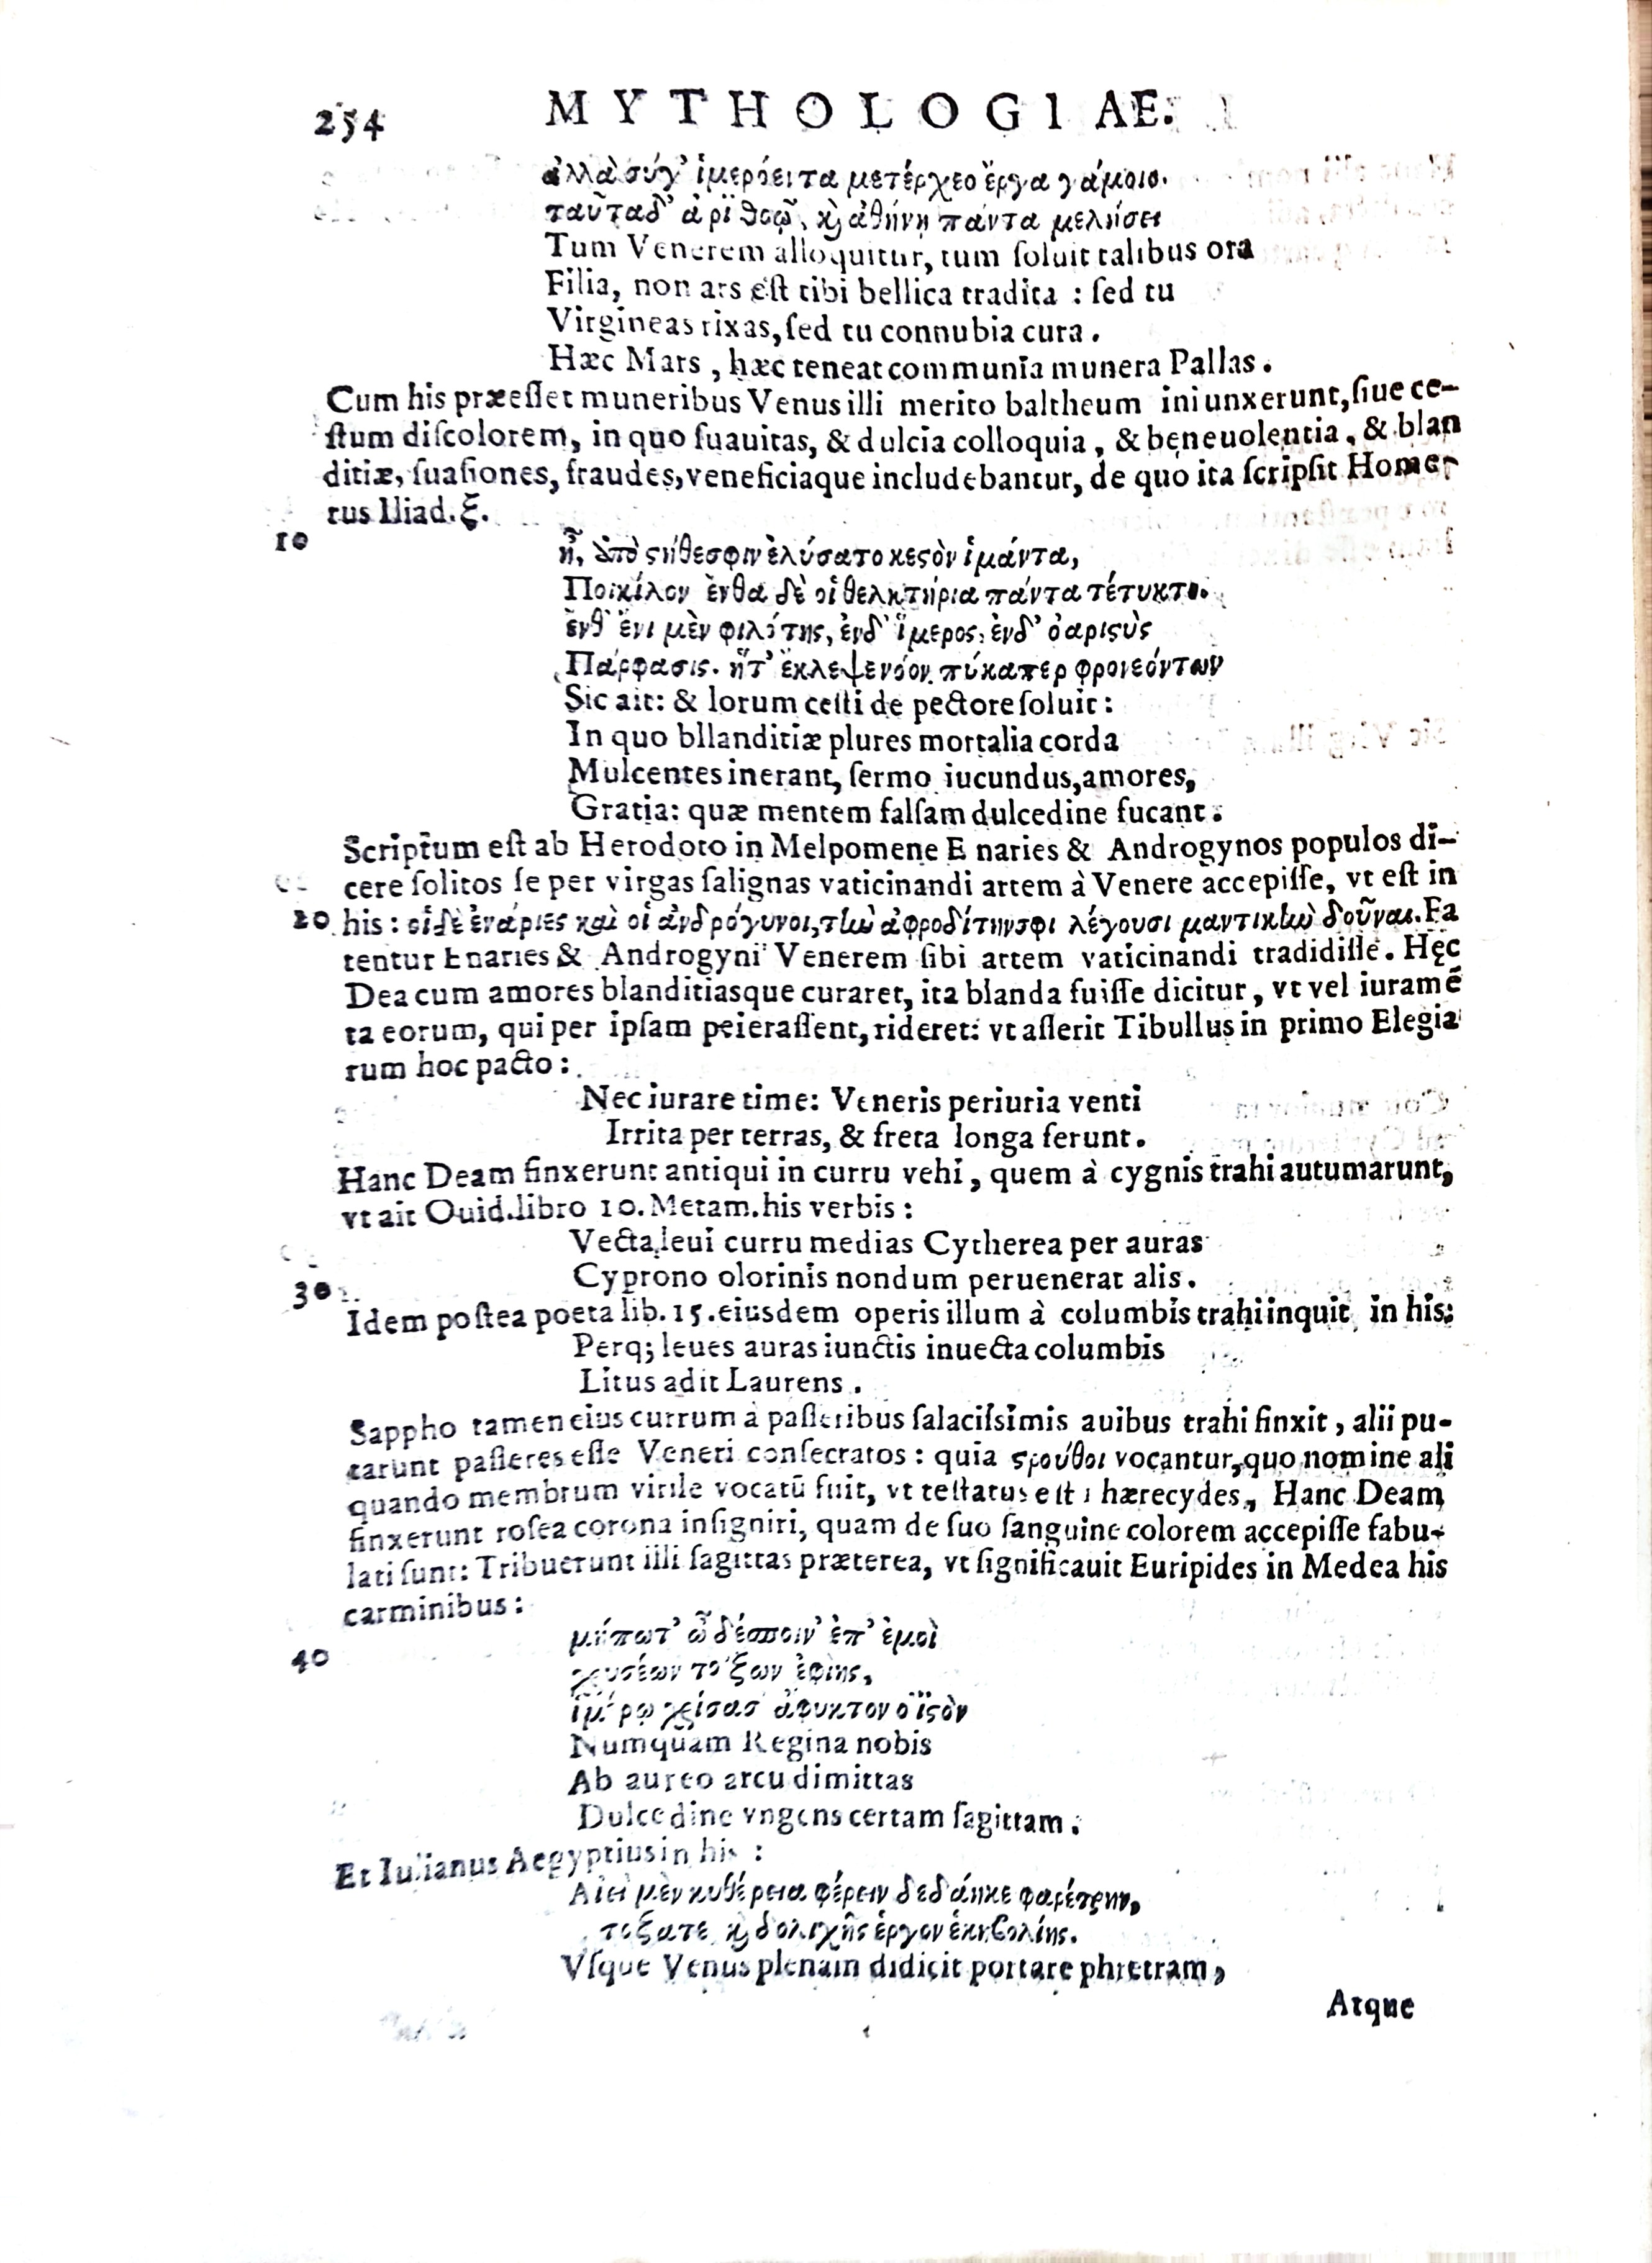 254 MYTHOLOGIAE.
ἀλλὰ σύγ' ἱμερόεντα μετέρχεο ἔργα γάμοιο.
ταῦτα δ' ἄρηϊ θοῷ, ϗ ἀθήνῃ πάντα μελήσει
Tum Venerem alloquitur, tum ſoluit talibus ora
Filia, non ars eſt tibi bellica tradita : ſed tu
Virgineas rixas, ſed tu connubia cura.
Hæc Mars, hæc teneat communia munera Pallas.
Cum his præeſſet muneribus Venus illi merito baltheum iniunxerunt, ſiue ce-
ſtum diſcolorem, in quo ſuauitas, & dulcia colloquia, & beneuolentia, & blan
ditiæ, ſuaſiones, fraudes, veneficiaque includebantur, de quo ita ſcripſit Home-
rus Iliad. ξ.
10
ἦ, ἀπὸ ϛήθεσφιν ἐλύσατο κεϛὸν ἱμάντα,
Ποικίλον ἔνθα δὲ οἱ θελκτήρια πάντα τέτυκτο.
ἔνθ' ἔνι μὲν φιλότης, ἐνδ' ἵμερος, ἐνδ' ὀαριϛὺς
Πάρφασις. ἥτ' ἔκλεψε νόον πύκα περ φρονεόντων
Sic ait: & lorum ceſti de pectore ſoluit:
In quo bllanditiæ plures mortalia corda
Mulcentes inerant, ſermo iucundus, amores,
Gratia: quæ mentem falſam dulcedine fucant.
Scriptum eſt ab Herodoto in Melpomene E naries & Androgynos populos di-
cere ſolitos ſe per virgas ſalignas vaticinandi artem à Venere accepiſſe, vt eſt in
20 his: οἱ δὲ ἐνάριες καὶ οἱ ἀνδρόγυνοι, τὼ ἀφροδίτην σφι λέγουσι μαντικὼ δοῦναι. Fa
tentur Enaries & Androgyni Venerem ſibi artem vaticinandi tradidiſſe. Hęc
Dea cum amores blanditiasque curaret, ita blanda fuiſſe dicitur, vt vel iuramē
ta eorum, qui per ipſam peieraſſent, rideret: vt aſſerit Tibullus in primo Elegia
rum hoc pacto:
Nec iurare time: Veneris periuria venti
Irrita per terras, & freta longa ferunt.
Hanc Deam finxerunt antiqui in curru vehi, quem à cygnis trahi autumarunt,
vt ait Ouid. libro 10. Metam. his verbis:
Vecta leui curru medias Cytherea per auras
Cyprono olorinis nondum peruenerat alis.
30
Idem poſtea poeta lib. 15. eiusdem operis illum à columbis trahi inquit in his:
Perq; leues auras iunctis inuecta columbis
Litus adit Laurens.
Sappho tamen eius currum à paſſeribus ſalaciſsimis auibus trahi finxit, alii pu-
tarunt paſſeres eſſe Veneri conſecratos: quia ϛρούθοι vocantur, quo nomine ali
quando membrum virile vocatū fuit, vt teſtatus eſt hærecydes, Hanc Deam
finxerunt roſea corona inſigniri, quam de ſuo ſanguine colorem accepiſſe fabu-
lati ſunt: Tribuerunt illi ſagittas præterea, vt ſignificauit Euripides in Medea his
carminibus:
μήπωτ' ὦ δέσποιν' ἐπ' ἐμοὶ
40
χρυσέων τόξων ἐφίης,
ἱμέρῳ χρίσασ' ἄφυκτον οἴϊϛὸν
Numquam Regina nobis
Ab aureo arcu dimittas
Dulcedine vngens certam ſagittam.
Et Iulianus Aegyptius in his:
Αἰεὶ μὲν κυθέρεια φέρειν δεδάηκε φαρέτρην,
τόξα τε ϗ δολιχῆς ἔργον ἑκηβολίης.
Vſque Venus plenam didicit portare phretram,
Atque